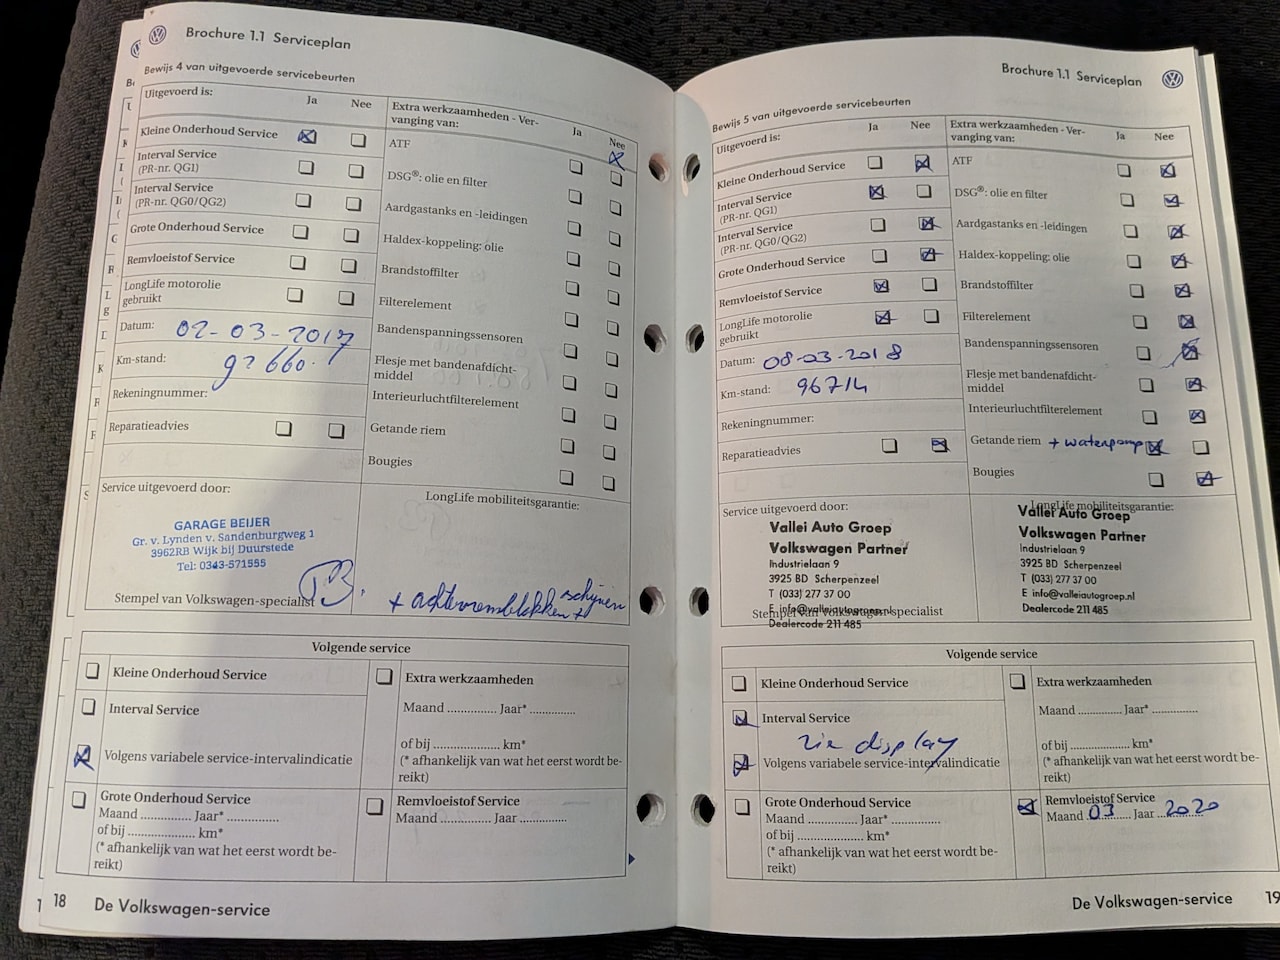 Brochure 1.1 Serviceplan
Bewijs 4 van uitgevoerde servicebeurten
Uitgevoerd is:
Ja
Nee
Kleine Onderhoud Service
Interval Service
(PR-nr. QG1)
Interval Service
(PR-nr. QG0/QG2)
Grote Onderhoud Service
Remvloeistof Service
LongLife motorolie
gebruikt
Datum: 02-03-2017
Km-stand: 92660.
Rekeningnummer:
Reparatieadvies
Extra werkzaamheden - Ver-
vanging van:
Ja
Nee
ATF
DSG®: olie en filter
Aardgastanks en -leidingen
Haldex-koppeling: olie
Brandstoffilter
Filterelement
Bandenspanningssensoren
Flesje met bandenafdicht-
middel
Interieurluchtfilterelement
Getande riem
Bougies
Service uitgevoerd door:
LongLife mobiliteitsgarantie:
GARAGE BEIJER
Gr. v. Lynden v. Sandenburgweg 1
3962RB Wijk bij Duurstede
Tel: 0343-571555
Stempel van Volkswagen-specialist
+ achterremblokken
schijven
Volgende service
Kleine Onderhoud Service
Interval Service
Volgens variabele service-intervalindicatie
Grote Onderhoud Service
Maand .............. Jaar* ..............
of bij .................... km*
(* afhankelijk van wat het eerst wordt be-
reikt)
Extra werkzaamheden
Maand .............. Jaar* ..............
of bij .................... km*
(* afhankelijk van wat het eerst wordt be-
reikt)
Remvloeistof Service
Maand .............. Jaar ..............
18 De Volkswagen-service
Brochure 1.1 Serviceplan
Bewijs 5 van uitgevoerde servicebeurten
Uitgevoerd is:
Ja
Nee
Kleine Onderhoud Service
Interval Service
(PR-nr. QG1)
Interval Service
(PR-nr. QG0/QG2)
Grote Onderhoud Service
Remvloeistof Service
LongLife motorolie
gebruikt
Datum: 08-03-2018
Km-stand: 96714
Rekeningnummer:
Reparatieadvies
Extra werkzaamheden - Ver-
vanging van:
Ja
Nee
ATF
DSG®: olie en filter
Aardgastanks en -leidingen
Haldex-koppeling: olie
Brandstoffilter
Filterelement
Bandenspanningssensoren
Flesje met bandenafdicht-
middel
Interieurluchtfilterelement
Getande riem + waterpomp
Bougies
Service uitgevoerd door:
LongLife mobiliteitsgarantie:
Vallei Auto Groep
Volkswagen Partner
Industrielaan 9
3925 BD Scherpenzeel
T (033) 277 37 00
E info@valleiautogroep.nl
Dealercode 211 485
Stempel van Volkswagen-specialist
Vallei Auto Groep
Volkswagen Partner
Industrielaan 9
3925 BD Scherpenzeel
T (033) 277 37 00
E info@valleiautogroep.nl
Dealercode 211 485
Volgende service
Kleine Onderhoud Service
Interval Service
zie display
Volgens variabele service-intervalindicatie
Grote Onderhoud Service
Maand .............. Jaar* ..............
of bij .................... km*
(* afhankelijk van wat het eerst wordt be-
reikt)
Extra werkzaamheden
Maand .............. Jaar* ..............
of bij .................... km*
(* afhankelijk van wat het eerst wordt be-
reikt)
Remvloeistof Service
Maand 03 Jaar 2020
De Volkswagen-service 19